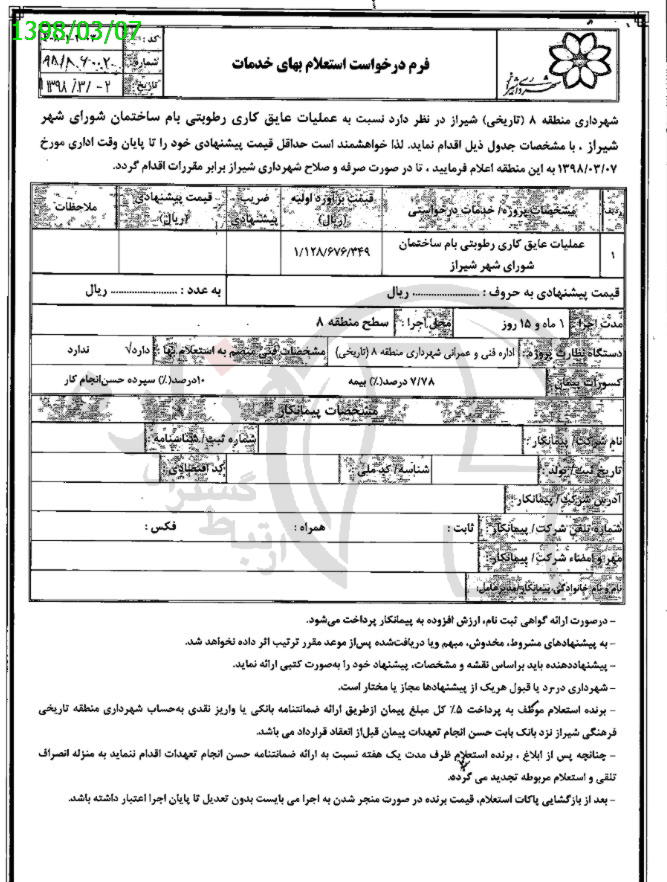 1398/03/07
کد:
شماره:
تاریخ: ۱۳۹۸/۳/-۲
فرم درخواست استعلام بهای خدمات
شهرداری منطقه ۸ (تاریخی) شیراز در نظر دارد نسبت به عملیات عایق کاری رطوبتی بام ساختمان شورای شهر
شیراز ، با مشخصات جدول ذیل اقدام نماید. لذا خواهشمند است حداقل قیمت پیشنهادی خود را تا پایان وقت اداری مورخ
۱۳۹۸/۰۳/۰۷ به این منطقه اعلام فرمایید ، تا در صورت صرفه و صلاح شهرداری شیراز برابر مقررات اقدام گردد.
ردیف مشخصات پروژه/ خدمات درخواستی قیمت برآورد اولیه (ریال) ضریب پیشنهادی قیمت پیشنهادی (ریال) ملاحظات
۱ عملیات عایق کاری رطوبتی بام ساختمان ۱/۱۲۸/۶۷۶/۳۴۹
شورای شهر شیراز
قیمت پیشنهادی به حروف : ...................... ریال به عدد : ...................... ریال
مدت اجرا: ۱ ماه و ۱۵ روز محل اجرا : سطح منطقه ۸
دستگاه نظارت پروژه : اداره فنی و عمرانی شهرداری منطقه ۸ (تاریخی) مشخصات فنی منضم به استعلام بها : دارد√ ندارد
کسورات پیمان: ۷/۷۸ درصد(٪) بیمه ۱۰درصد(٪) سپرده حسن‌انجام کار
مشخصات پیمانکار
نام شرکت/ پیمانکار : شماره ثبت/ شناسنامه :
تاریخ ثبت/ تولد : شناسه/ کد ملی : کد اقتصادی :
آدرس شرکت/ پیمانکار :
شماره تلفن شرکت/ پیمانکار : ثابت : همراه : فکس :
مهر و امضاء شرکت/ پیمانکار:
نام و نام خانوادگی پیمانکار/مدیرعامل:
– درصورت ارائه گواهی ثبت نام، ارزش افزوده به پیمانکار پرداخت می‌شود.
– به پیشنهادهای مشروط، مخدوش، مبهم ویا دریافت‌شده پس‌از موعد مقرر ترتیب اثر داده نخواهد شد.
– پیشنهاددهنده باید براساس نقشه و مشخصات، پیشنهاد خود را به‌صورت کتبی ارائه نماید.
– شهرداری در‌رد یا قبول هریک از پیشنهادها مجاز یا مختار است.
– برنده استعلام موظف به پرداخت ۵٪ کل مبلغ پیمان ازطریق ارائه ضمانتنامه بانکی یا واریز نقدی به‌حساب شهرداری منطقه تاریخی
فرهنگی شیراز نزد بانک بابت حسن انجام تعهدات پیمان قبل‌از انعقاد قرارداد می باشد.
– چنانچه پس از ابلاغ ، برنده استعلام ظرف مدت یک هفته نسبت به ارائه ضمانتنامه حسن انجام تعهدات اقدام ننماید به منزله انصراف
تلقی و استعلام مربوطه تجدید می گردد.
– بعد از بازگشایی پاکات استعلام، قیمت برنده در صورت منجر شدن به اجرا می بایست بدون تعدیل تا پایان اجرا اعتبار داشته باشد.